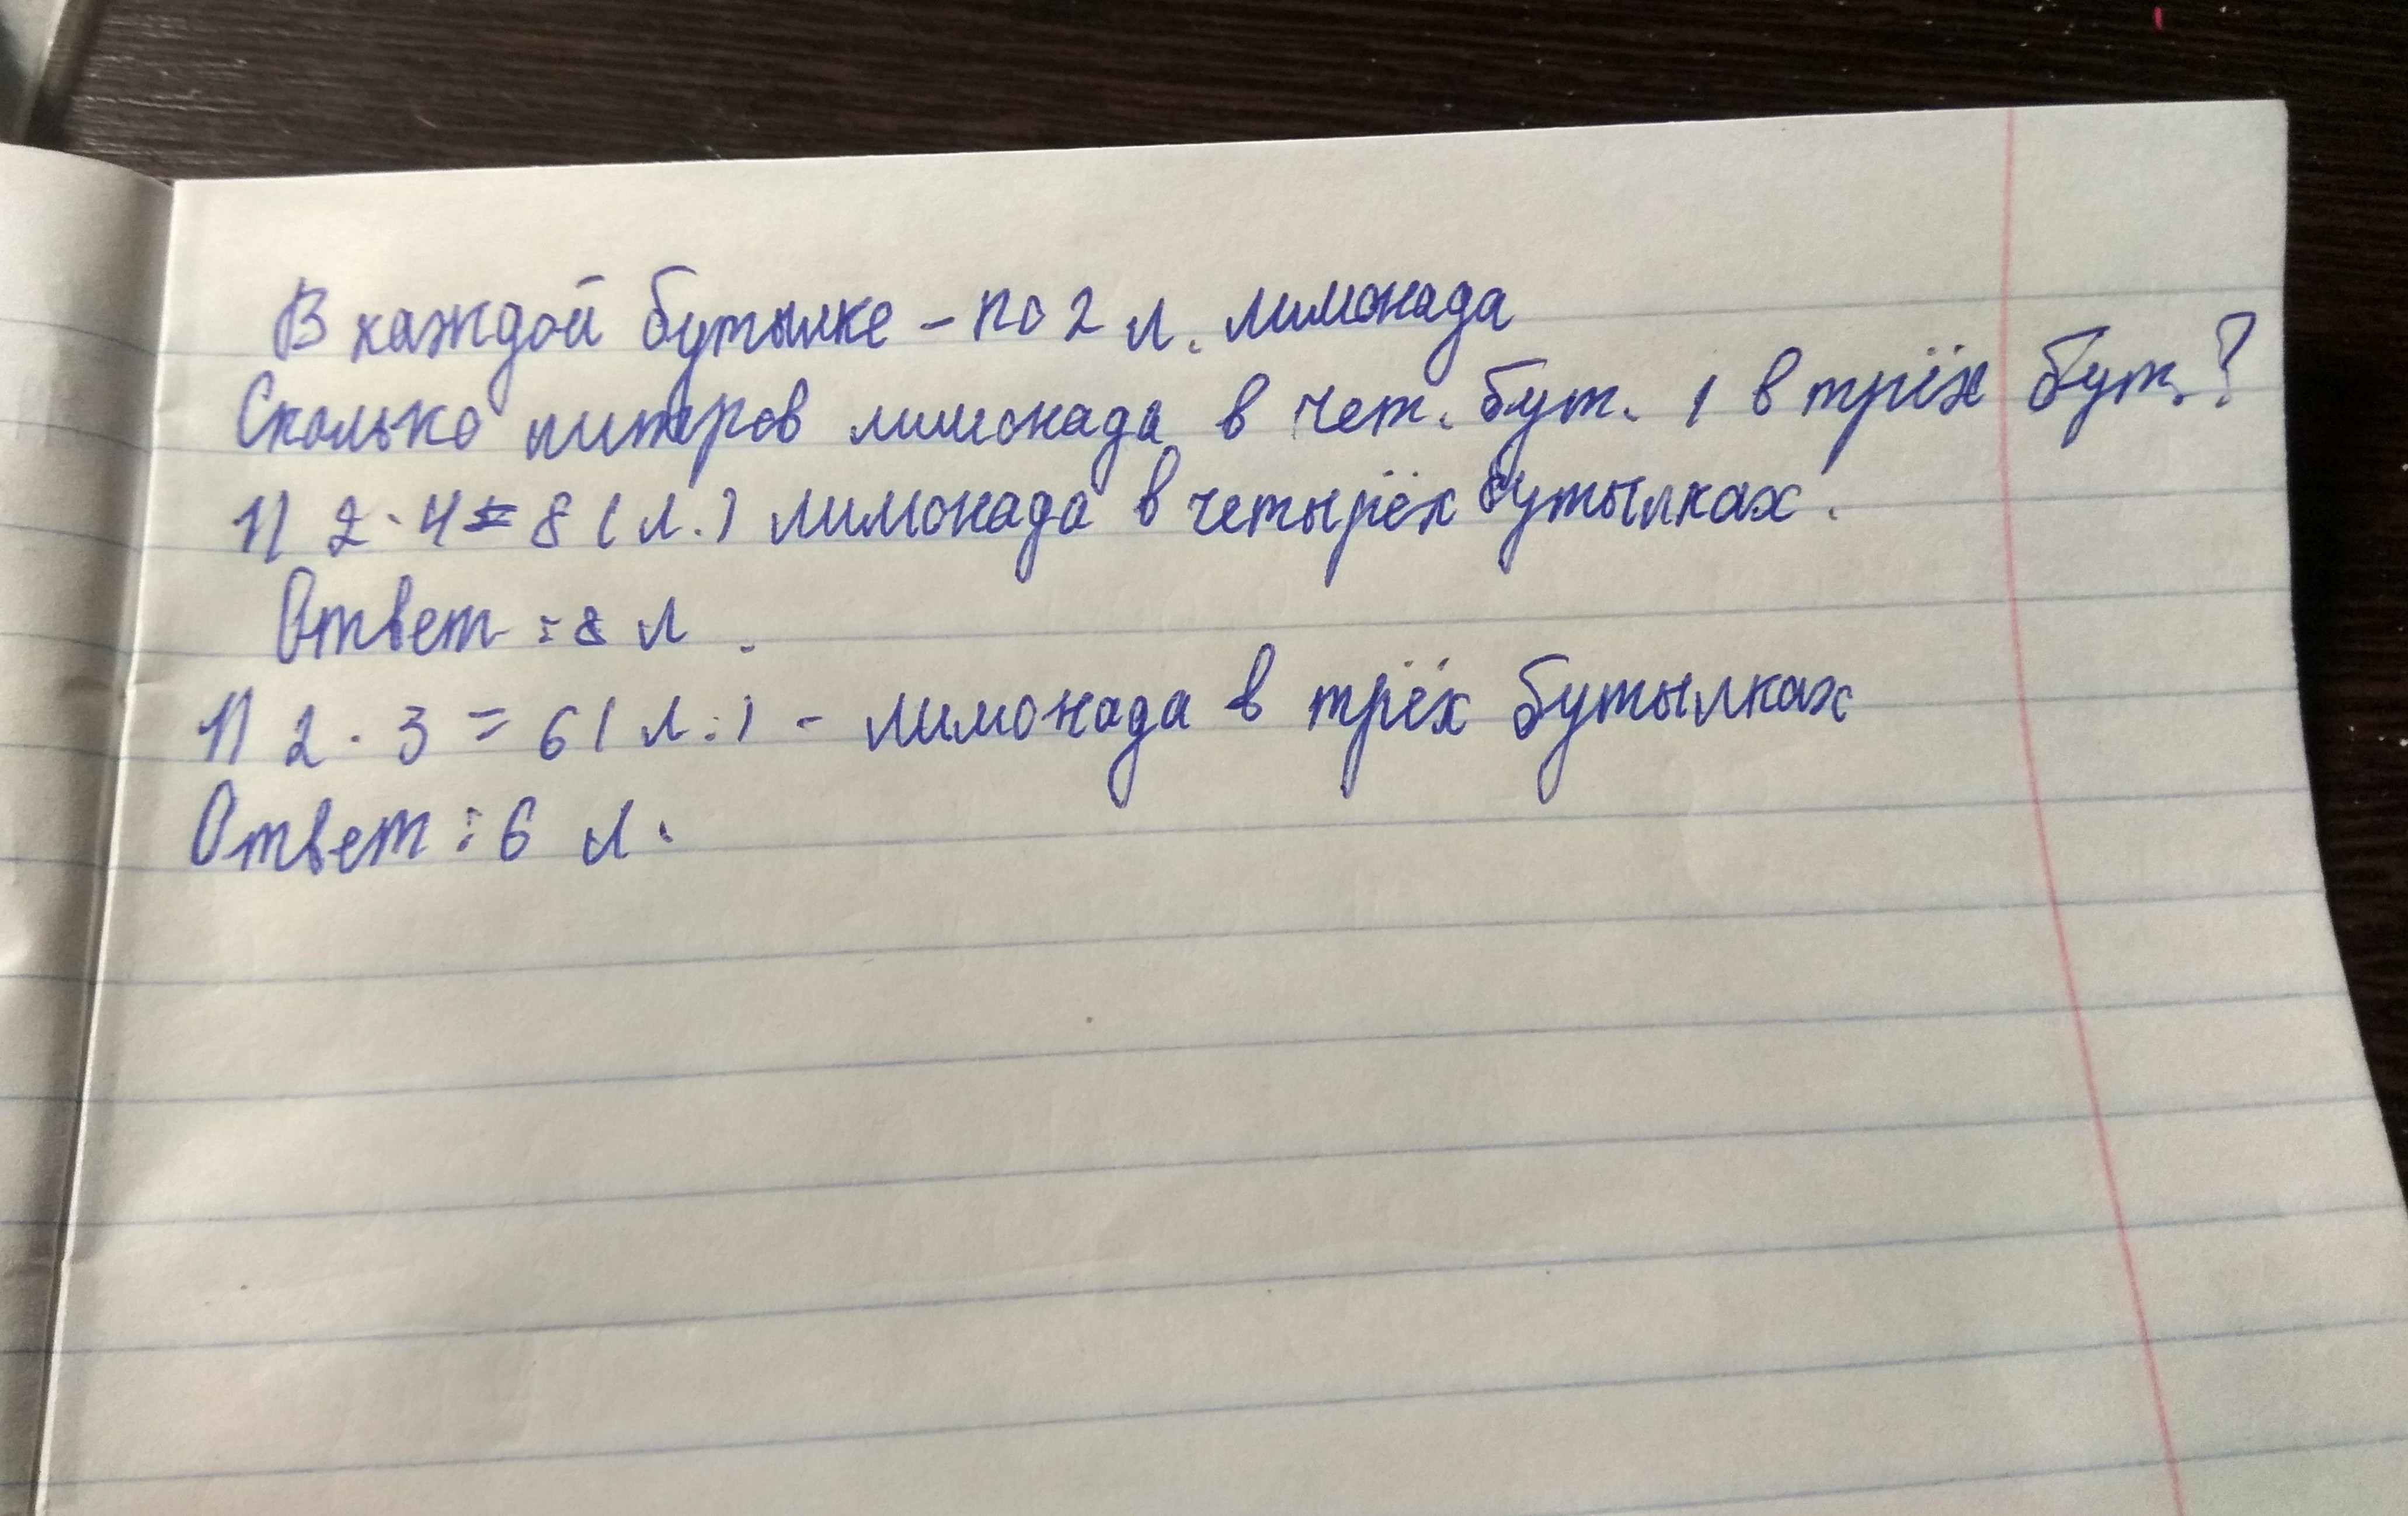 В каждой бутылке – по 2 л. лимонада
Сколько литров лимонада в чет. бут. , в трёх бут.?
1) 2 · 4 = 8 (л.) лимонада в четырёх бутылках.
Ответ : 8 л.
1) 2 · 3 = 6 (л.) - лимонада в трёх бутылках
Ответ : 6 л.